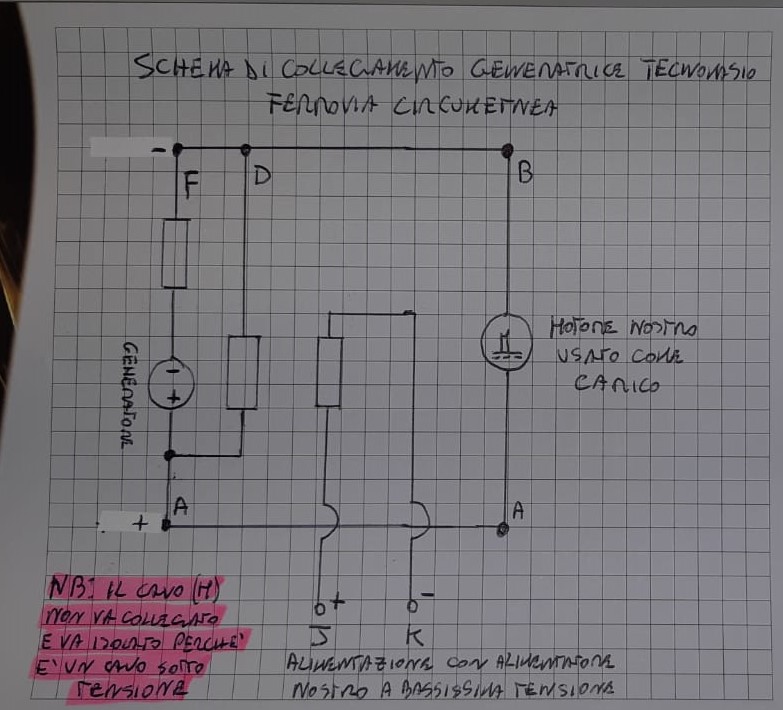 SCHEMA DI COLLEGAMENTO GENERATRICE TECNOMASIO
FERROVIA CIRCUMETNEA
-
F
D
B
GENERATORE
-
+
M
MOTORE NOSTRO
USATO COME
CARICO
A
+
A
+
-
J
K
NB: IL CAVO (H)
NON VA COLLEGATO
E VA ISOLATO PERCHE'
E' UN CAVO SOTTO
TENSIONE
ALIMENTAZIONE CON ALIMENTATORE
NOSTRO A BASSISSIMA TENSIONE